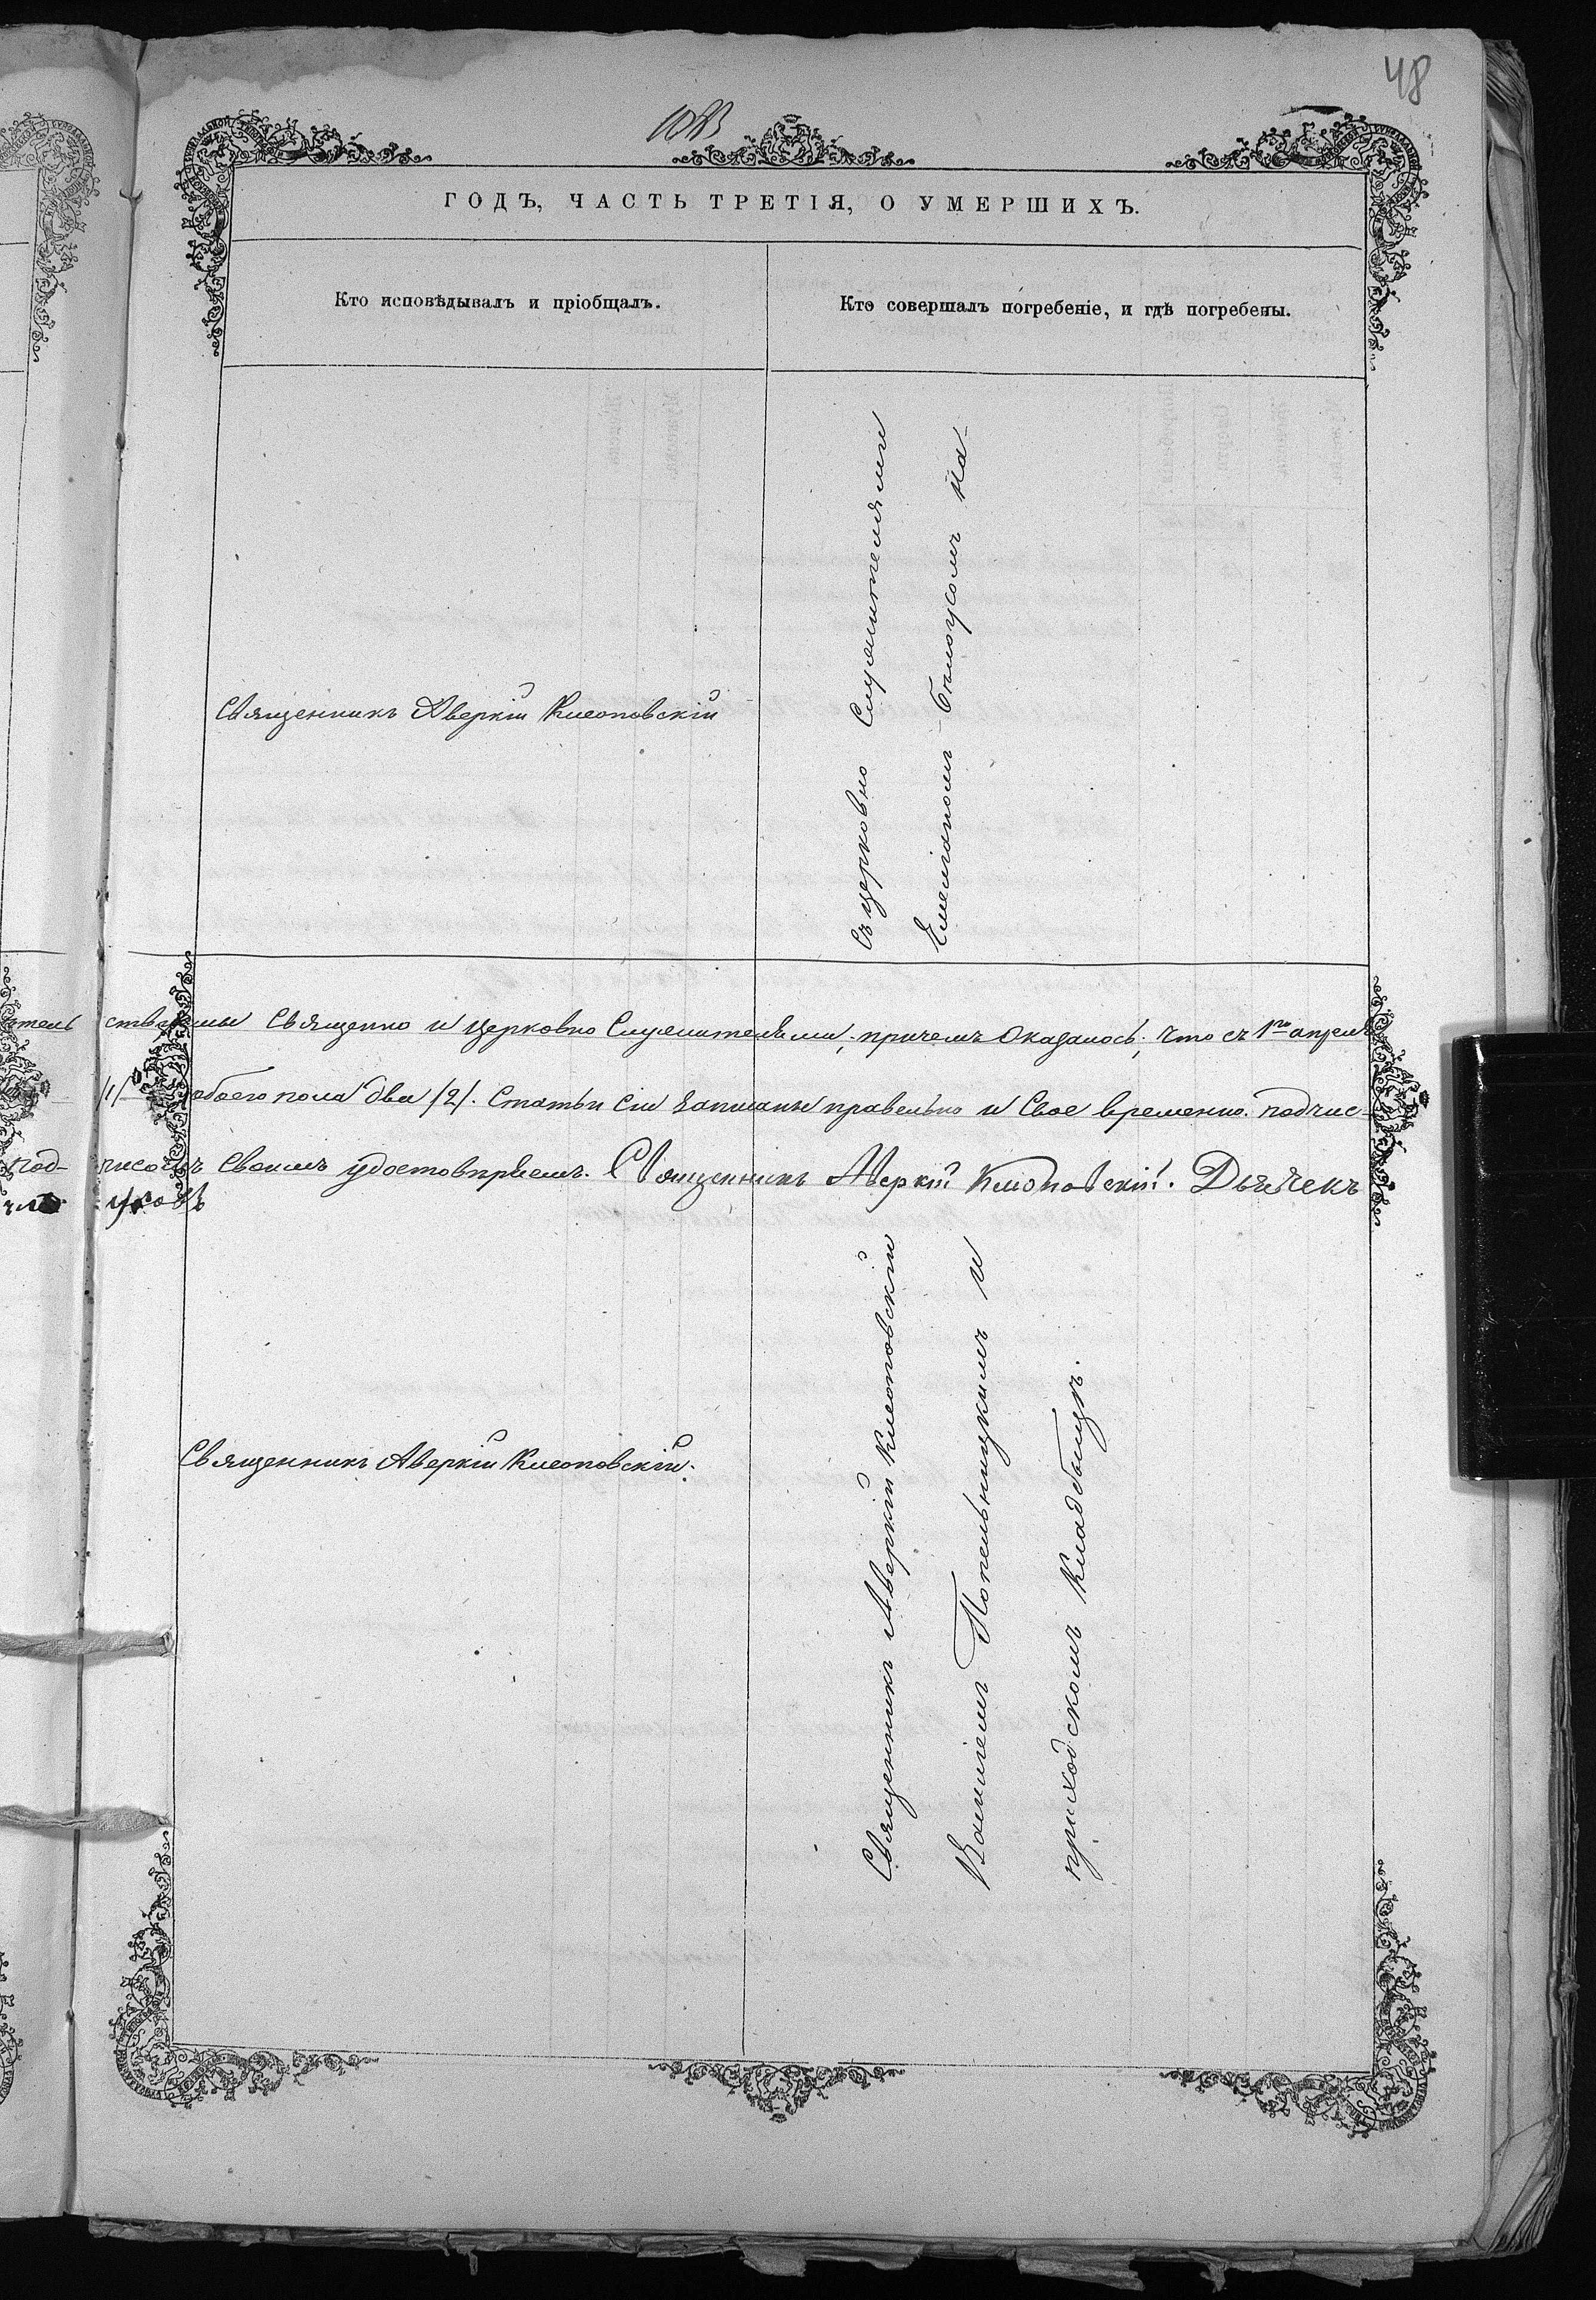 48
ГОДЪ, ЧАСТЬ ТРЕТІЯ, О УМЕРШИХЪ.
Кто исповѣдывалъ и пріобщалъ.
Кто совершалъ погребеніе, и гдѣ погребены.
Священникъ Аверкій Клеоповскій
Съ церковно Служителями
Емеліяномъ Билоусомъ на-
ствуемы Священно и Церковно Служителями, причемъ Оказалось, что съ 1го апреля
/1/ обоего пола два /2/. Статьи сіи записаны правельно и Свое временно. подчис-
под- писомъ Своимъ удостовѣряемъ. Священникъ Аверкій Клеоповскій. Дьячекъ
Священникъ Аверкій Клеоповскій.
Священникъ Аверкій Клеоповскій
Василіемъ Попельницкимъ и
приходскомъ Кладбищѣ.